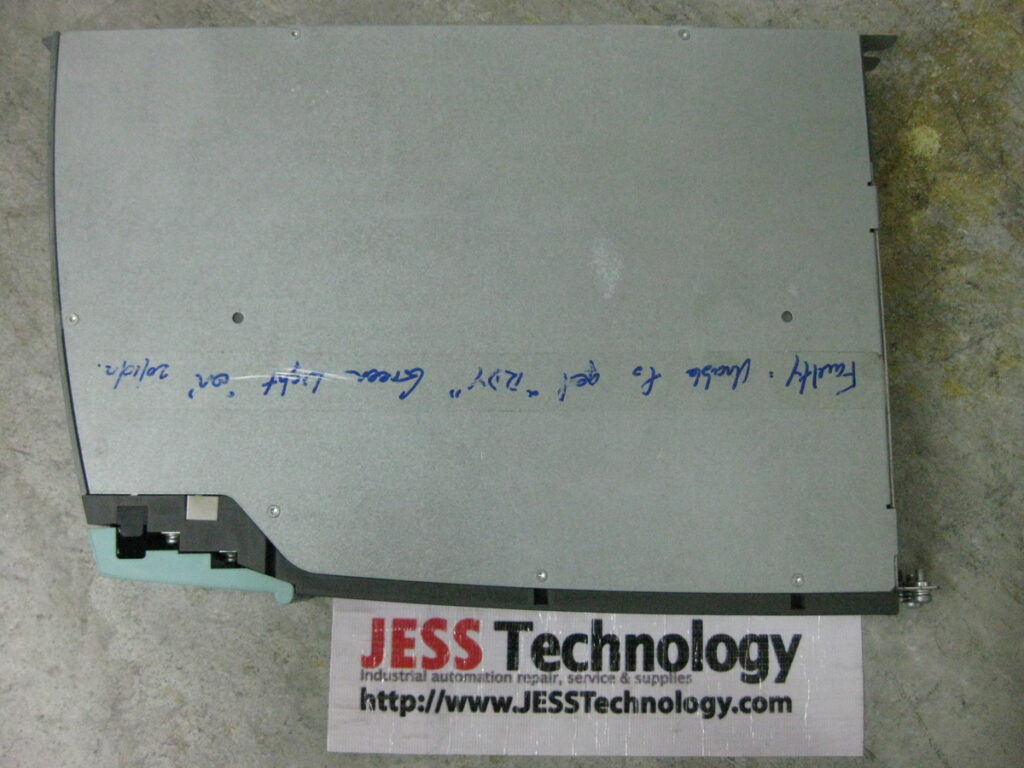 Faulty : Unable to get "RDY" Green Light "on"
JESS Technology
industrial automation repair, service & supplies
http://www.JESSTechnology.com